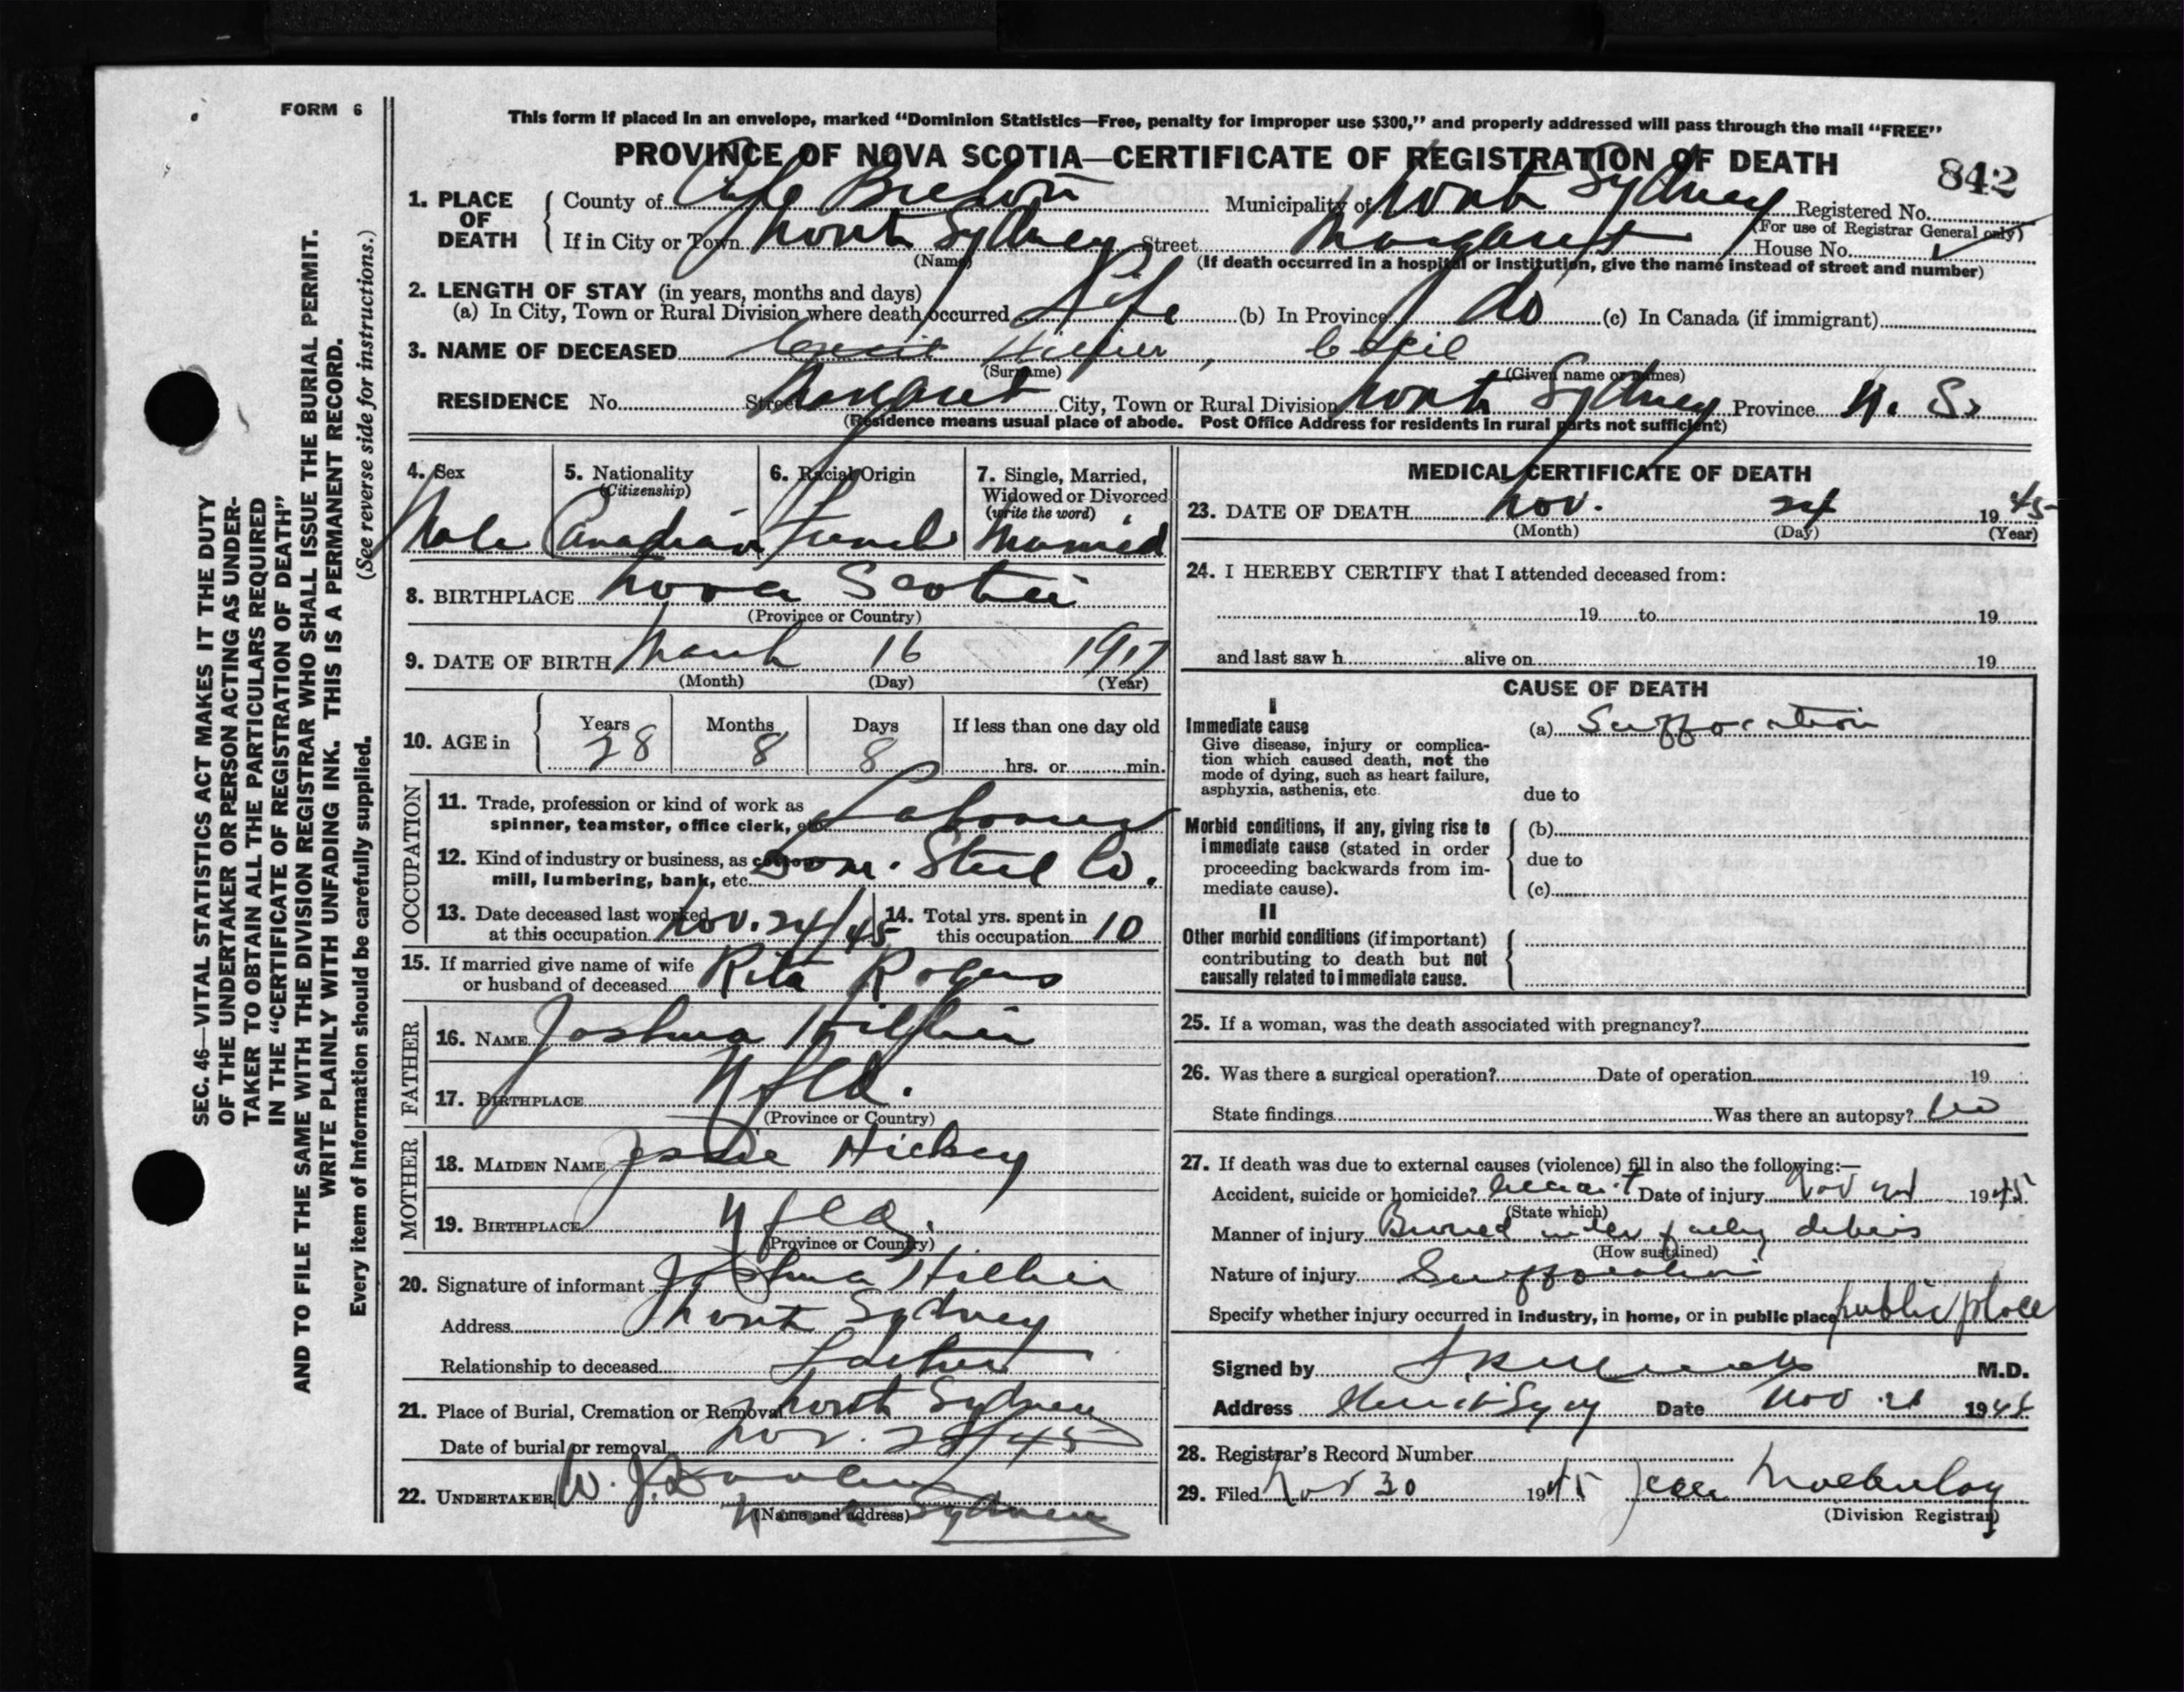 FORM 6
This form if placed in an envelope, marked "Dominion Statistics—Free, penalty for improper use $300," and properly addressed will pass through the mail "FREE"
PROVINCE OF NOVA SCOTIA—CERTIFICATE OF REGISTRATION OF DEATH
842
1. PLACE OF DEATH
County of Cape Breton Municipality of North Sydney Registered No.
(For use of Registrar General only)
If in City or Town North Sydney Street Margaret House No.
(Name) (If death occurred in a hospital or Institution, give the name instead of street and number)
2. LENGTH OF STAY (in years, months and days)
(a) In City, Town or Rural Division where death occurred Life (b) In Province do (c) In Canada (if immigrant)
3. NAME OF DECEASED Hillier, Cecil
(Surname) (Given name or names)
RESIDENCE No. Street Margaret City, Town or Rural Division North Sydney Province N. S.
(Residence means usual place of abode. Post Office Address for residents in rural parts not sufficient)
4. Sex
Male
5. Nationality
(Citizenship)
Canadian
6. Racial Origin
French
7. Single, Married,
Widowed or Divorced
(write the word)
Married
8. BIRTHPLACE Nova Scotia
(Province or Country)
9. DATE OF BIRTH March 16 1917
(Month) (Day) (Year)
10. AGE in
Years Months Days If less than one day old
28 8 8 hrs. or min.
OCCUPATION
11. Trade, profession or kind of work as
spinner, teamster, office clerk, etc. Labourer
12. Kind of industry or business, as cotton
mill, lumbering, bank, etc. Dom. Steel Co.
13. Date deceased last worked
at this occupation Nov. 24/45
14. Total yrs. spent in
this occupation 10
15. If married give name of wife
or husband of deceased Rita Rogers
FATHER
16. NAME Joshua Hillier
17. BIRTHPLACE Nfld.
(Province or Country)
MOTHER
18. MAIDEN NAME Jessie Hickey
19. BIRTHPLACE Nfld.
(Province or Country)
20. Signature of informant Joshua Hillier
Address North Sydney
Relationship to deceased Father
21. Place of Burial, Cremation or Removal North Sydney
Date of burial or removal Nov. 28/45
22. UNDERTAKER W. J.
(Name and address) North Sydney
MEDICAL CERTIFICATE OF DEATH
23. DATE OF DEATH Nov. 24 1945
(Month) (Day) (Year)
24. I HEREBY CERTIFY that I attended deceased from:
19 to 19
and last saw h alive on 19
CAUSE OF DEATH
I
Immediate cause
Give disease, injury or complica-
tion which caused death, not the
mode of dying, such as heart failure,
asphyxia, asthenia, etc.
(a) Suffocation
due to
Morbid conditions, if any, giving rise to
immediate cause (stated in order
proceeding backwards from im-
mediate cause).
(b)
due to
(c)
II
Other morbid conditions (if important)
contributing to death but not
causally related to immediate cause.
25. If a woman, was the death associated with pregnancy?
26. Was there a surgical operation? Date of operation 19
State findings Was there an autopsy? No
27. If death was due to external causes (violence) fill in also the following:—
Accident, suicide or homicide? Accident Date of injury Nov 1945
(State which)
Manner of injury Buried under falling debris
(How sustained)
Nature of injury Suffocation
Specify whether injury occurred in industry, in home, or in public place public place
Signed by M.D.
Address Date Nov 1945
28. Registrar's Record Number
29. Filed Nov 30 1945
(Division Registrar)
SEC. 46—VITAL STATISTICS ACT MAKES IT THE DUTY
OF THE UNDERTAKER OR PERSON ACTING AS UNDER-
TAKER TO OBTAIN ALL THE PARTICULARS REQUIRED
IN THE "CERTIFICATE OF REGISTRATION OF DEATH"
AND TO FILE THE SAME WITH THE DIVISION REGISTRAR WHO SHALL ISSUE THE BURIAL PERMIT.
WRITE PLAINLY WITH UNFADING INK. THIS IS A PERMANENT RECORD.
Every item of Information should be carefully supplied. (See reverse side for instructions.)